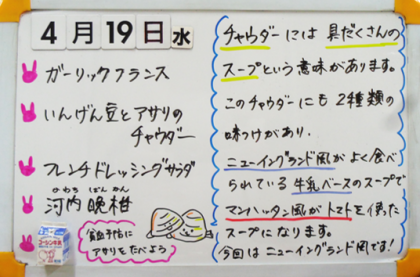 4月19日水
ガーリックフランス
いんげん豆とアサリの
チャウダー
フレンチドレッシングサラダ
かわち ばんかん
河内晩柑
貧血予防に
アサリをたべよう
チャウダーには 具だくさんの
スープという意味があります。
このチャウダーにも2種類の
味つけがあり、
ニューイングランド風がよく食べ
られている牛乳ベースのスープで
マンハッタン風がトマトを使った
スープになります。
今回はニューイングランド風です!